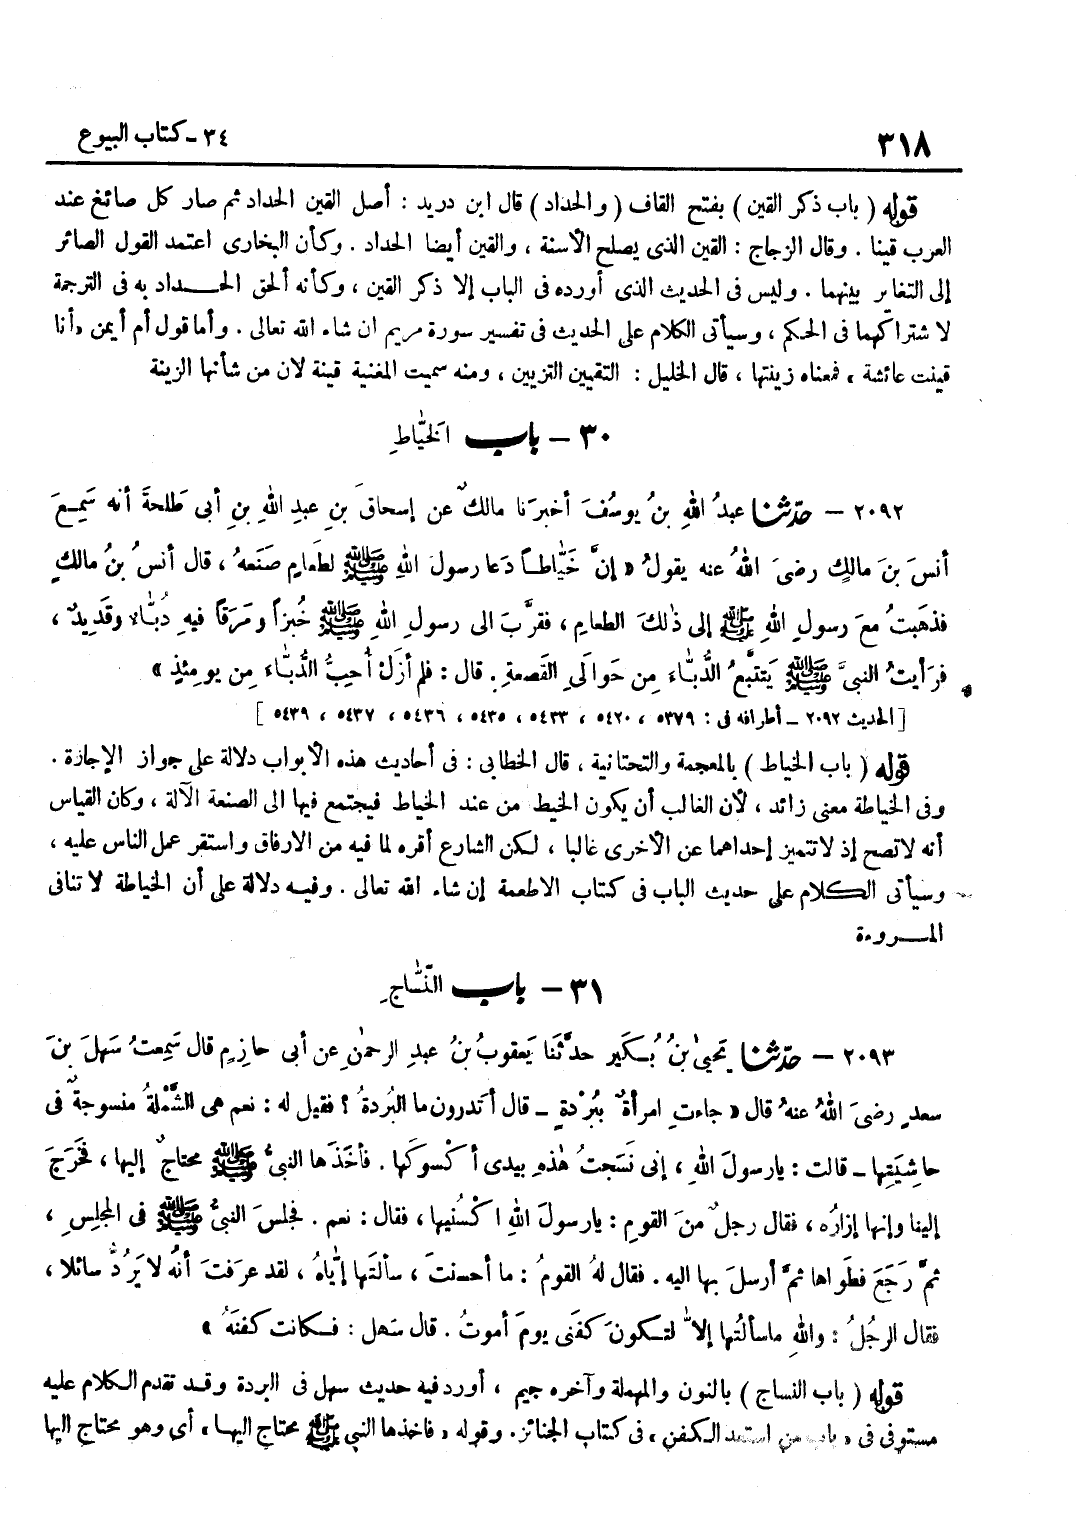 ٣١٨
٣٤ - كتاب البيوع
قوله ( باب ذكر القين ) بفتح القاف ( والحداد ) قال ابن دريد : أصل القين الحداد ثم صار كل صائغ عند
العرب قينا . وقال الزجاج : القين الذى يصلح الأسنة ، والقين أيضا الحداد . وكأن البخارى اعتمد القول الصائر
إلى التغاير بينهما . وليس فى الحديث الذى أورده فى الباب إلا ذكر القين ، وكأنه ألحق الحـداد به فى الترجمة
لاشتراكهما فى الحكم ، وسيأتى الكلام على الحديث فى تفسير سورة مريم ان شاء الله تعالى . وأما قول أم أيمن « أنا
قينت عائشة » فمعناه زينتها ، قال الخليل : التقيين التزيين ، ومنه سميت المغنية قينة لان من شأنها الزينة
٣٠ - باب الخَيَّاطِ
٢٠٩٢ - حدّثنا عبدُ اللهِ بنُ يوسُفَ أخبرَنا مالكٌ عن إسحاقَ بنِ عبدِ اللهِ بنِ أبى طَلحةَ أنه سَمِـعَ
أنسَ بنَ مالكٍ رضىَ اللهُ عنه يقولُ « إنَّ خَيَّاطـاً دَعا رسولَ اللهِ ﷺ لطَعامٍ صنَعهُ ، قال أنسُ بنُ مالكٍ
فذهَبتُ معَ رسولِ اللهِ ﷺ إلى ذٰلكَ الطعامِ ، فقرَّبَ الى رسولِ اللهِ ﷺ خُبزاً ومَرَقاً فيهِ دُبَّاء وقَديدٌ ،
فرَأيتُ النبىَّ ﷺ يَتتبَّعُ الدُّبَّاءَ مِن حَوالَىِ القَصعةِ . قال : فلم أزَلْ أُحِبُّ الدُّبَّاءَ مِن يومِئذٍ »
[ الحديث ٢٠٩٢ - أطرافه فى : ٥٣٧٩ ، ٥٤٢٠ ، ٥٤٣٣ ، ٥٤٣٥ ، ٥٤٣٦ ، ٥٤٣٧ ، ٥٤٣٩ ]
قوله ( باب الخياط ) بالمعجمة والتحتانية ، قال الخطابى : فى أحاديث هذه الأبواب دلالة على جواز الإجازة .
وفى الخياطة معنى زائد ، لأن الغالب أن يكون الخيط من عند الخياط فيجتمع فيها الى الصنعة الآلة ، وكان القياس
أنه لاتصح إذ لاتتميز إحداهما عن الأخرى غالبا ، لكن الشارع أقره لما فيه من الارفاق واستقر عمل الناس عليه ،
وسيأتى الكلام على حديث الباب فى كتاب الاطعمة إن شاء الله تعالى . وفيه دلالة على أن الخياطة لا تنافى
المـروءة
٣١ - باب النَّسَّاجِ
٢٠٩٣ - حدّثنا يَحيىٰ بنُ بُـكَير حدَّثَنا يَعقوبُ بنُ عبدِ الرحمٰنِ عن أبى حازِمٍ قال سَمِعتُ سَهلَ بنَ
سعدٍ رضىَ اللهُ عنهُ قال « جاءتِ امرأةٌ ببُرْدةٍ - قال أتَدرون ما البُردةُ ؟ فقيل له : نعم هى الشَّمْلةُ منسوجةٌ فى
حاشيَتِها - قالت : يارسولَ اللهِ ، إنى نَسَجتُ هٰذهِ بيدى أكْسوكَها . فأخَذَها النبىُّ ﷺ محتاجٌ إليها ، فخَرَجَ
إلينا وإنها إزارُه ، فقال رجلٌ منَ القومِ : يارسولَ اللهِ اكْسُنيها ، فقال : نعم . فجلسَ النبىُّ ﷺ فى المجلِسِ ،
ثمَّ رَجَعَ فطَواها ثمَّ أرسلَ بها اليه . فقال لهُ القومُ : ما أحسنتَ ، سألتَها إيَّاهُ ، لقد عرفتَ أنَّهُ لا يَرُدُّ سائلا ،
فقال الرجُلُ : واللهِ ماسألتُها إلاَّ لتكونَ كفَنى يومَ أموتُ . قال سَهل : فـكانت كفنَهُ »
قوله ( باب النساج ) بالنون والمهملة وآخره جيم ، أورد فيه حديث سهل فى البردة وقـد تقدم الكلام عليه
مستوفى فى « باب من استعد الكفن » فى كتاب الجنائز . وقوله « فاخذها النبى ﷺ محتاج اليهـا » أى وهو محتاج اليها